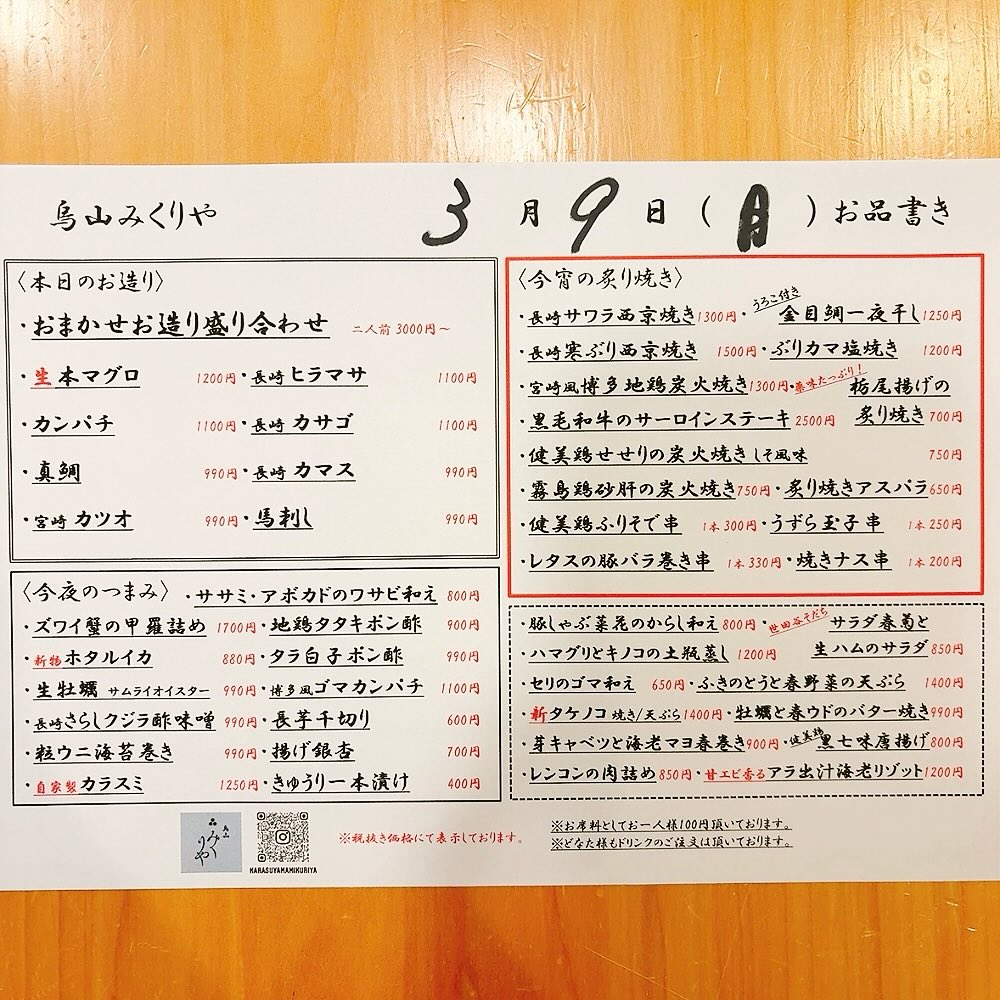 烏山みくりや 3月9日(月)お品書き
〈本日のお造り〉
・おまかせお造り盛り合わせ 二人前 3000円～
・生本マグロ 1200円・長崎 ヒラマサ 1100円
・カンパチ 1100円・長崎 カサゴ 1100円
・真鯛 990円・長崎 カマス 990円
・宮崎 カツオ 990円・馬刺し 990円
〈今夜のつまみ〉・ササミ・アボカドのワサビ和え 800円
・ズワイ蟹の甲羅詰め 1700円・地鶏タタキポン酢 900円
・新物ホタルイカ 880円・タラ白子ポン酢 990円
・生牡蠣 サムライオイスター 990円・博多風ゴマカンパチ 1100円
・長崎さらしクジラ酢味噌 990円・長芋千切り 600円
・粒ウニ海苔巻き 990円・揚げ銀杏 700円
・自家製カラスミ 1250円・きゅうり一本漬け 400円
〈今宵の炙り焼き〉
・長崎サワラ西京焼き1300円・うろこ付き金目鯛一夜干し1250円
・長崎寒ぶり西京焼き 1500円・ぶりカマ塩焼き 1200円
・宮崎風博多地鶏炭火焼き1300円・薬味たっぷり！栃尾揚げの
炙り焼き 700円
・黒毛和牛のサーロインステーキ 2500円
・健美鶏せせりの炭火焼き しそ風味 750円
・霧島鶏砂肝の炭火焼き750円・炙り焼きアスパラ650円
・健美鶏ふりそで串 1本300円・うずら玉子串 1本250円
・レタスの豚バラ巻き串 1本330円・焼きナス串 1本200円
・豚しゃぶ菜花のからし和え800円・世田谷そだちサラダ春菊と
生ハムのサラダ850円
・ハマグリとキノコの土瓶蒸し 1200円
・セリのゴマ和え 650円・ふきのとうと春野菜の天ぷら 1400円
・新タケノコ 焼き/天ぷら1400円・牡蠣と春ウドのバター焼き990円
・芽キャベツと海老マヨ春巻き900円・健美鶏黒七味唐揚げ800円
・レンコンの肉詰め850円・甘エビ香るアラ出汁海老リゾット1200円
みくりや
KARASUYAMAMIKURIYA
※税抜き価格にて表示しております。
※お席料としてお一人様100円頂いております。
※どなた様もドリンクのご注文は頂いております。